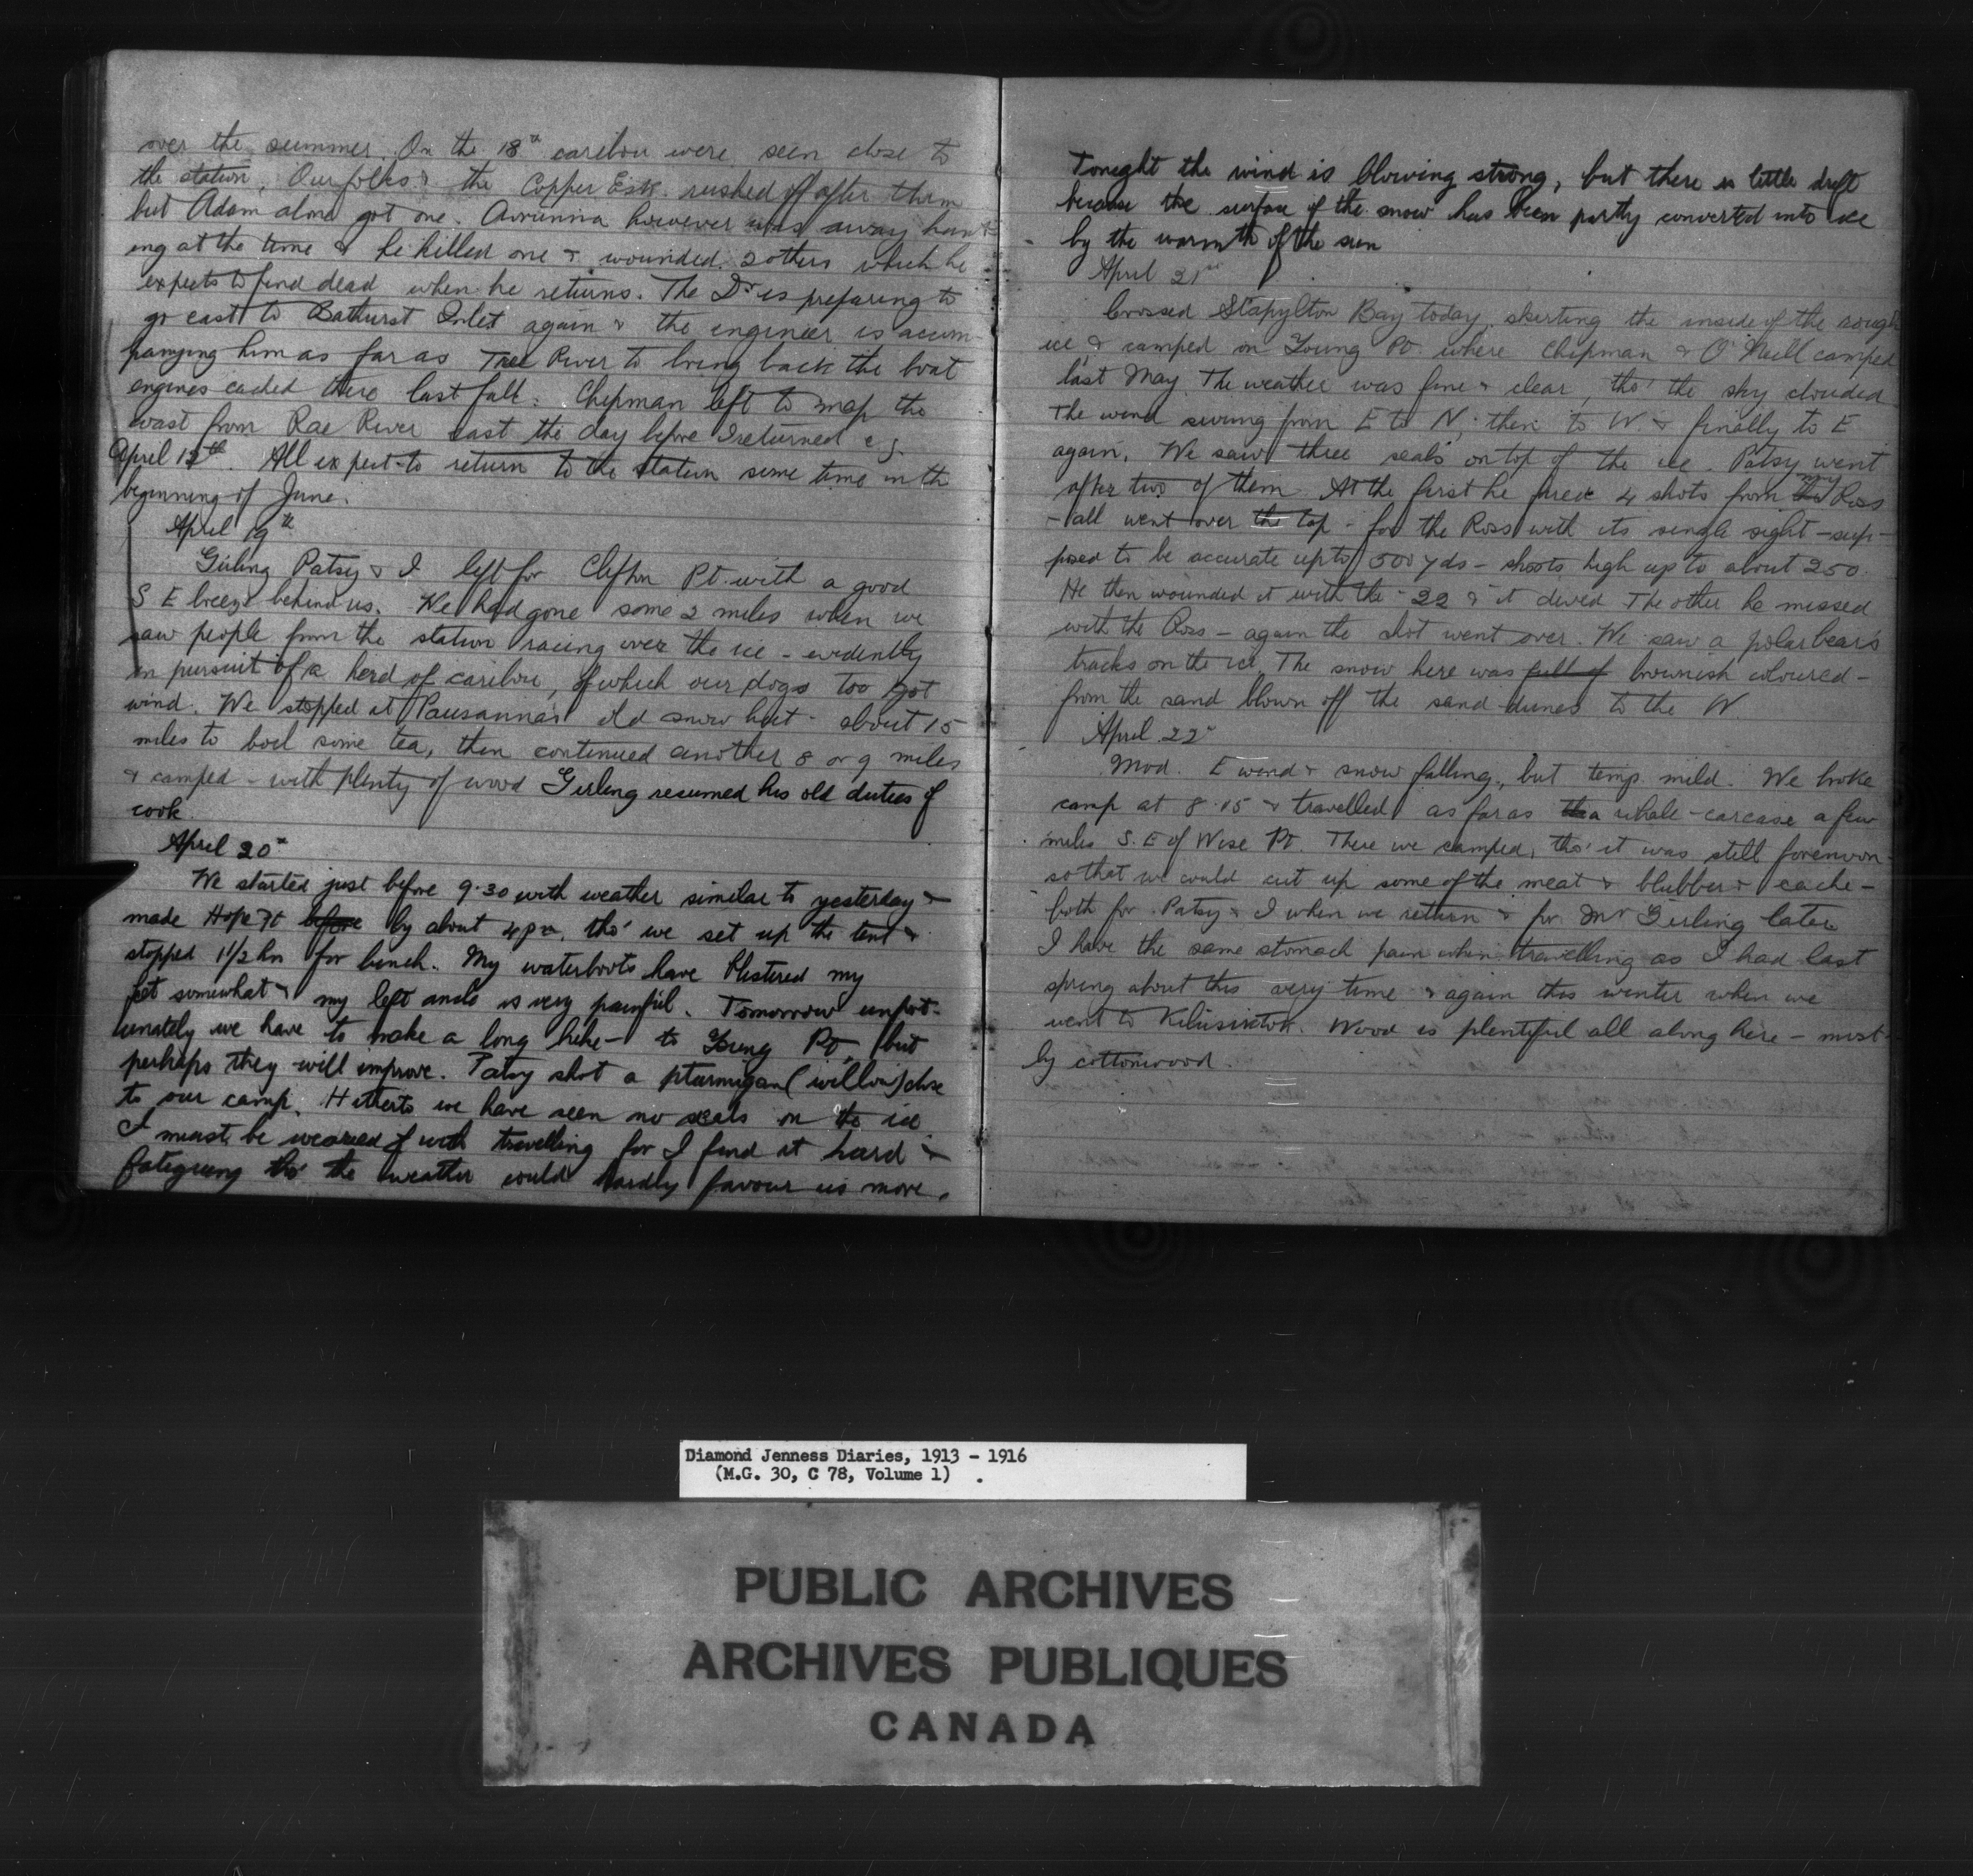 over the summer. On the 18th caribou were seen close to
the station. Our folks & the Copper Esk. rushed off after them
but Adam alone got one. Avrunna however was away hunt-
ing at the time & he killed one & wounded 2 others which he
expects to find dead when he returns. The Dr is preparing to
go east to Bathurst Inlet again & the engineer is accom
panying him as far as Tree River to bring back the boat
engines cached there last fall. Chipman left to map the
coast from Rae River east the day before I returned e.g.
April 12th. All expect to return to the station some time in the
beginning of June.
April 19th
Girling Patsy & I left for Clifton Pt. with a good
S E breeze behind us. We had gone some 2 miles when we
saw people from the station racing over the ice - evidently
in pursuit of a herd of caribou, of which our dogs too got
wind. We stopped at Pausanna's old snow hut - about 15
miles to boil some tea, then continued another 8 or 9 miles
& camped - with plenty of wood Girling resumed his old duties of
cook.
April 20th
We started just before 9.30 with weather similar to yesterday &
made Hope Pt before by about 4 pm. tho' we set up the tent &
stopped 1 1/2 hrs for lunch. My waterboots have blistered my
feet somewhat & my left ankle is very painful. Tomorrow unfort-
unately we have to make a long hike - to Young Pt, but
perhaps they will improve. Patsy shot a ptarmigan (willow) close
to our camp. Hitherto we have seen no seals on the ice
I must be wearied with travelling for I find it hard &
fatiguing tho' the weather could hardly favour us more.
Tonight the wind is blowing strong, but there is little drift
because the surface of the snow has been partly converted into ice
by the warmth of the sun
April 21st
Crossed Stapylton Bay today skirting the inside of the rough
ice, & camped on Young Pt. where Chipman & O'Neill camped
last May. The weather was fine & clear, tho' the sky clouded.
The wind swung from E to N, then to W. & finally to E
again. We saw three seals on top of the ice. Patsy went
after two of them. At the first he fired 4 shots from my Ross
- all went over the top - for the Ross with its single sight - sup-
posed to be accurate up to 500 yds - shoots high up to about 250.
He then wounded it with the .22 & it dived The other he missed
with the Ross - again the shot went over. We saw a polar bear's
tracks on the ice. The snow here was full of brownish coloured -
from the sand blown off the sand-dunes to the W.
April 22nd
Mod. E wind & snow falling, but temp. mild. We broke
camp at 8.15 & travelled as far as a whale-carcase a few
miles S. E of Wise Pt. There we camped, tho' it was still forenoon -
so that we could cut up some of the meat & blubber & cache -
both for Patsy & I when we return & for Mr Girling later
I have the same stomach pain when travelling as I had last
spring about this very time & again this winter when we
went to Kilusiktok. Wood is plentiful all along here - most-
ly cottonwood.
Diamond Jenness Diaries, 1913 - 1916
(M.G. 30, C 78, Volume 1)
PUBLIC ARCHIVES
ARCHIVES PUBLIQUES
CANADA